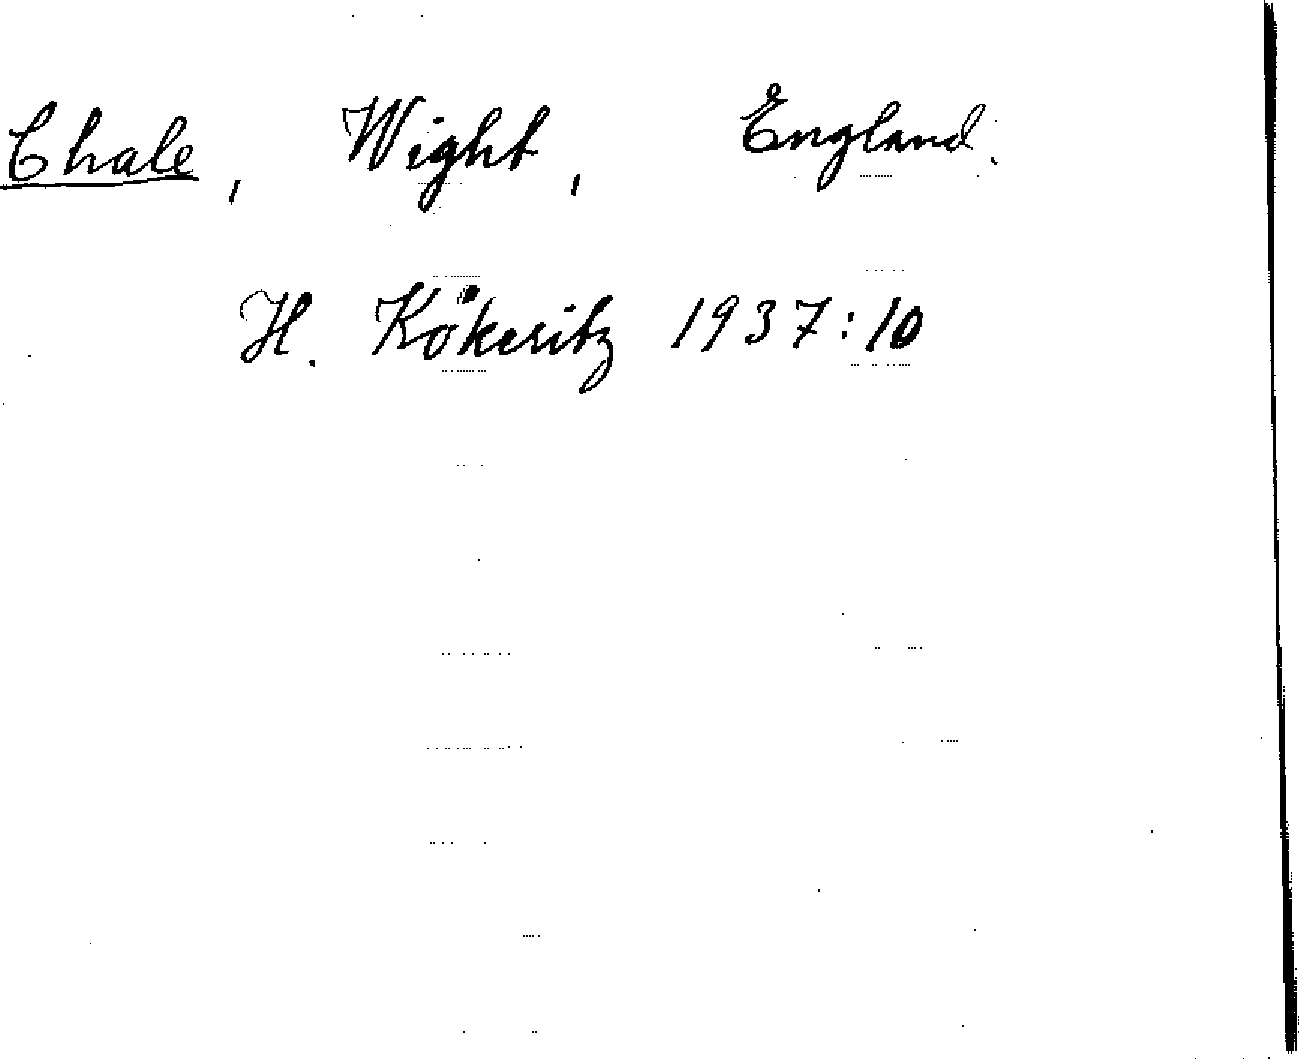 Chale, Wight, England.
H. Kökeritz 1937:10